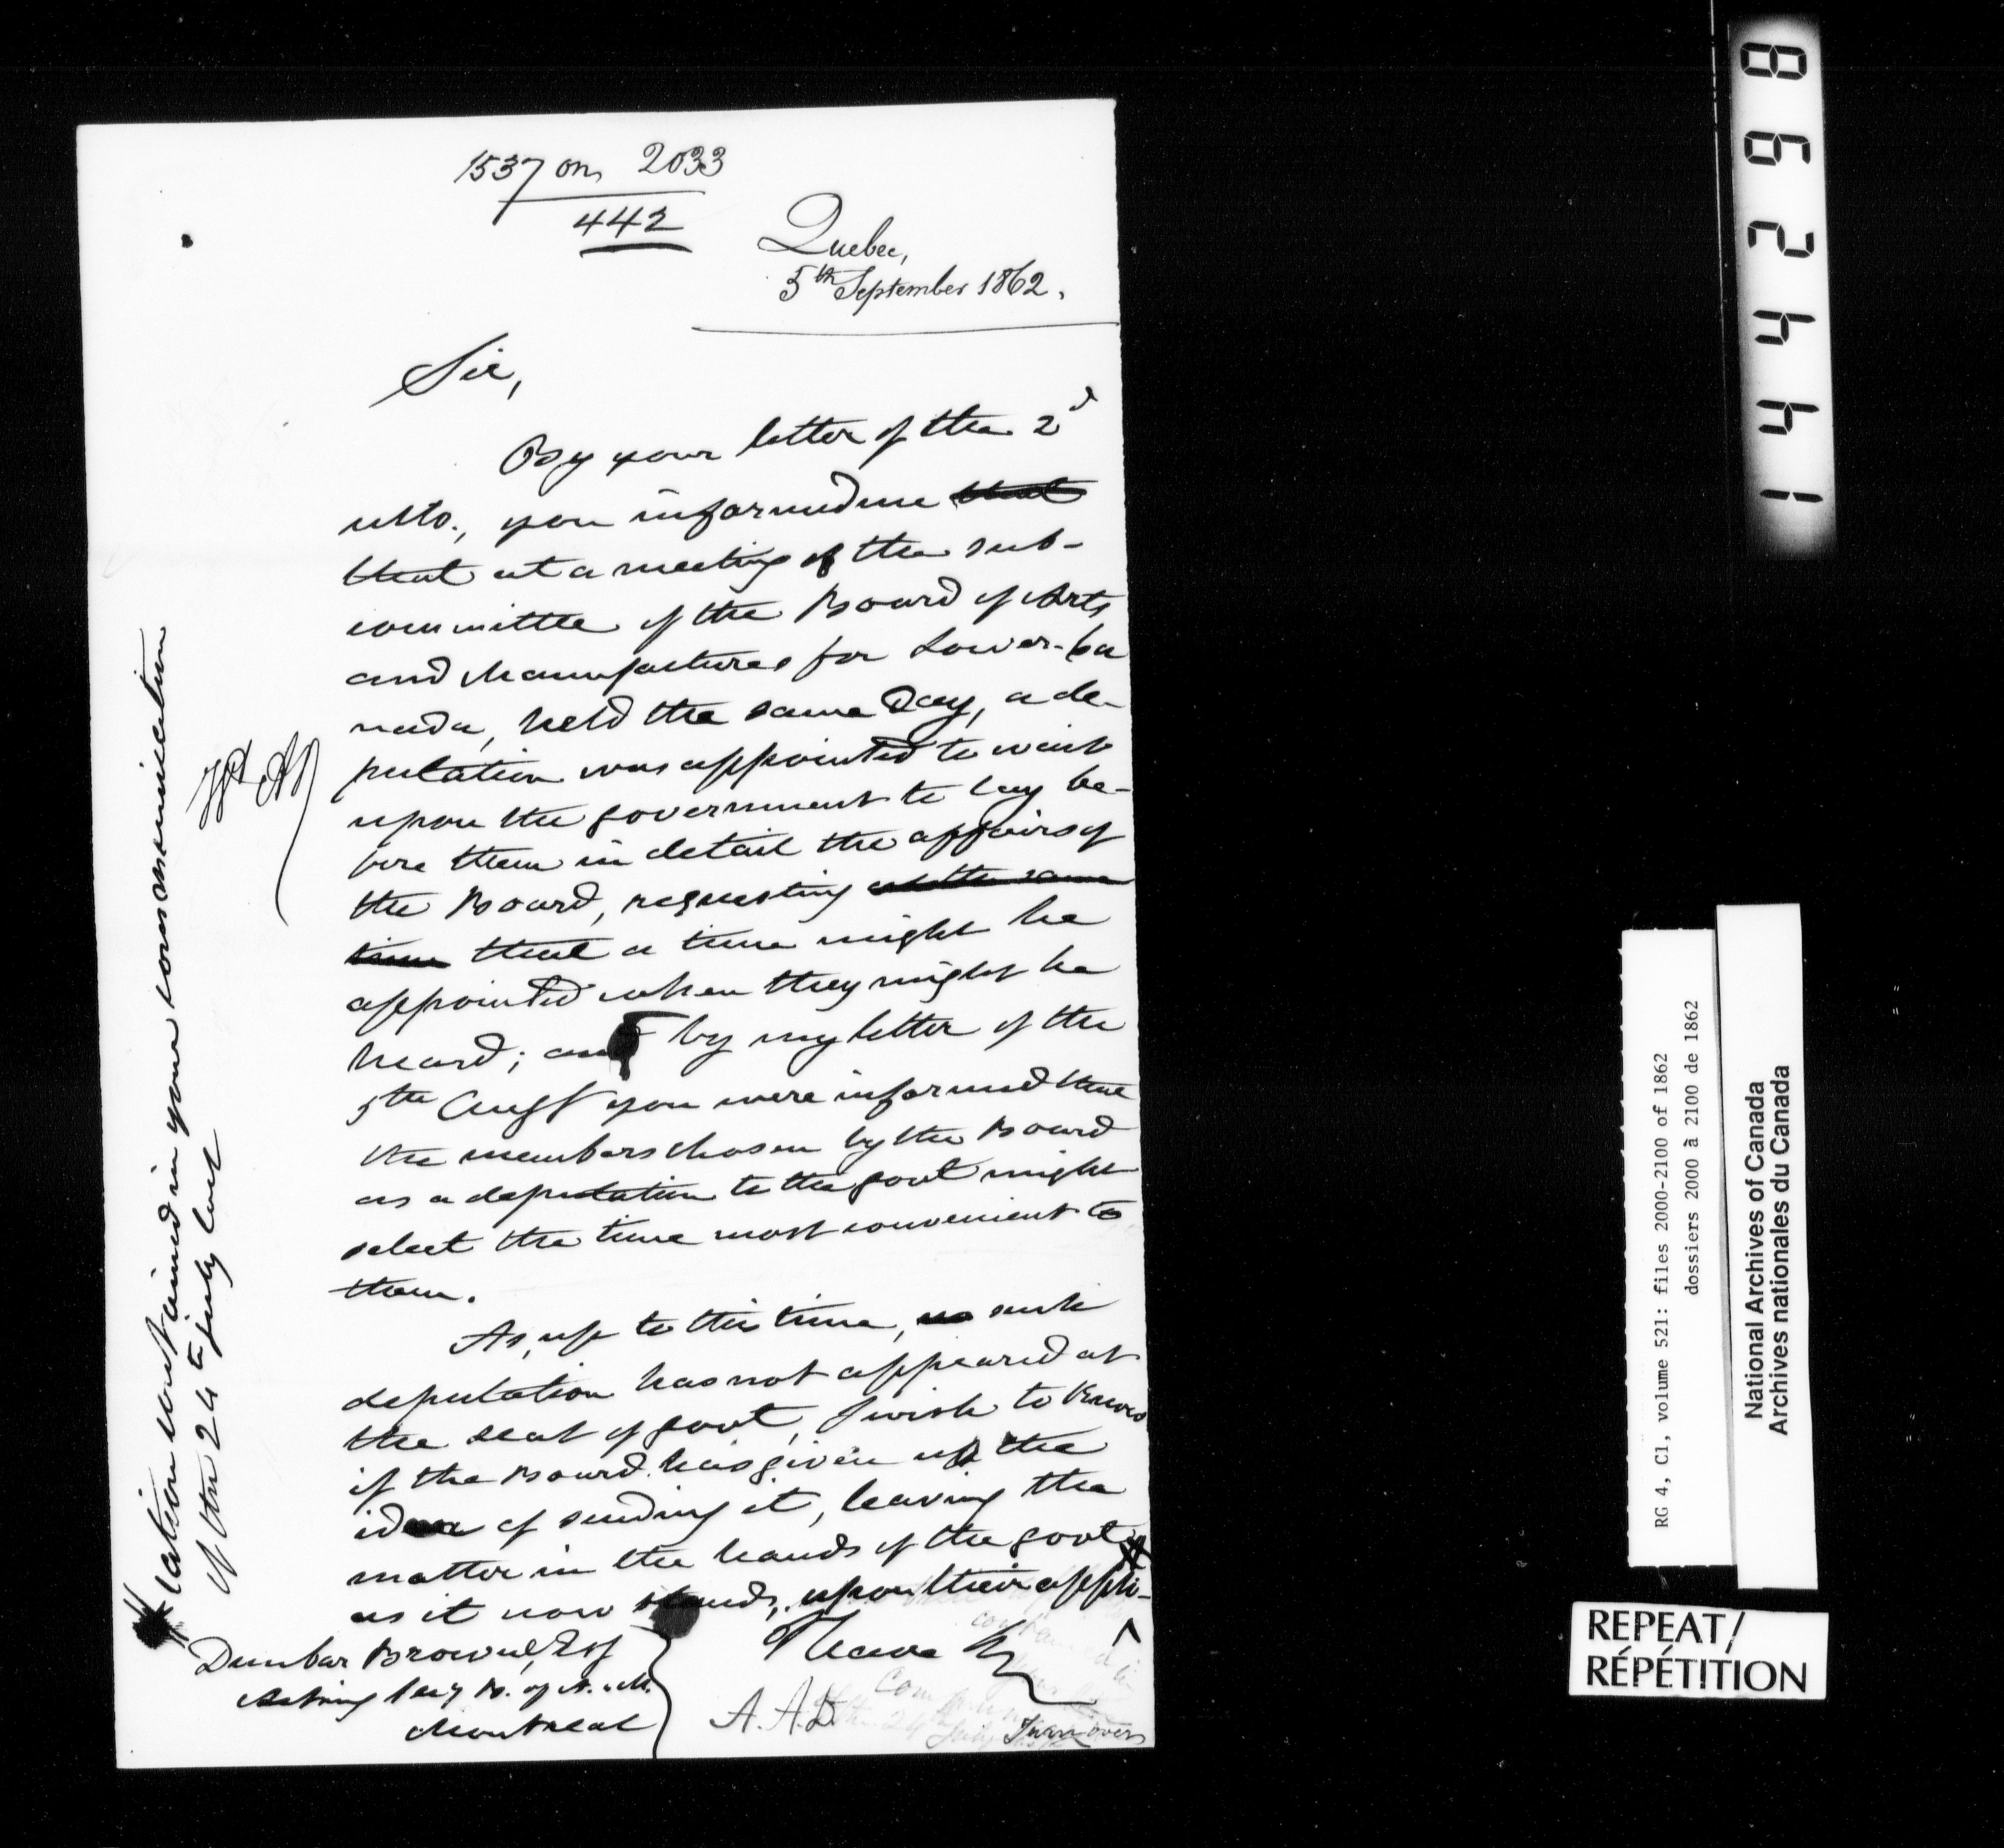 1537 on 2033
442
Quebec,
5th September 1862.
Sir,
By your letter of the 2d
ulto., you informed me that
that at a meeting of the sub-
committee of the Board of Arts
and Manufactures for Lower-Ca
nada, held the same day, a de-
putation was appointed to wait
upon the government to lay be-
fore them in detail the affairs of
the Board, requesting at the same
time that a time might be
appointed when they might be
heard; and by my letter of the
5th Augt you were informed that
the members chosen by the Board
as a deputation to the govt might
select the time most convenient to
them.
As, up to this time, no such
deputation has not appeared at
the seat of govt, I wish to know
if the Board has given up the
idea of sending it, leaving the
matter in the hands of the govt
as it now stands, upon their appli-
cation contained in your communication
of the 24th July last
Dunbar Browne, Esq
Acting Secy B. of A. & M.
Montreal
I have &
A.A.D.
Turn over
869244 1
RG 4, C1, volume 521: files 2000-2100 of 1862
dossiers 2000 à 2100 de 1862
National Archives of Canada
Archives nationales du Canada
REPEAT/
RÉPÉTITION